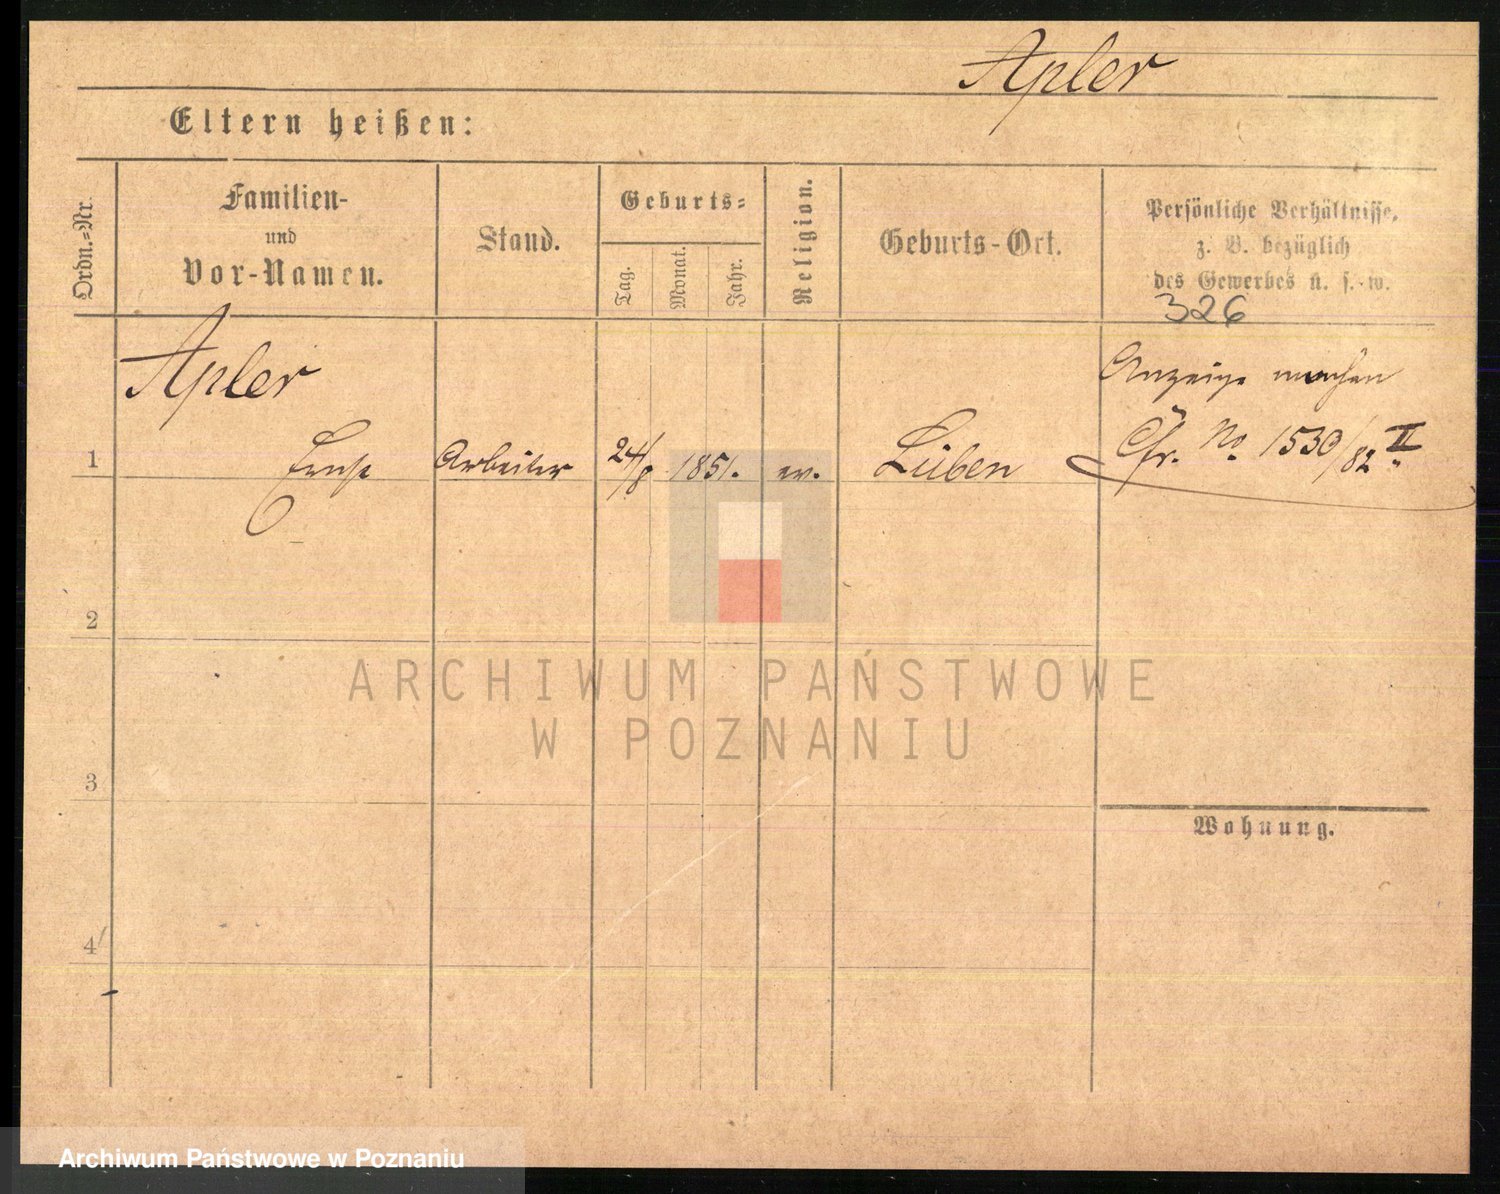 Apler
Eltern heißen:
Ordn.-Nr.
Familien-
und
Vor-Namen.
Stand.
Geburts-
Tag.
Monat.
Jahr.
Religion.
Geburts-Ort.
Persönliche Verhältnisse,
z. B. bezüglich
des Gewerbes u. s. w.
326
Apler
Anzeige machen
1 Ernst Arbeiter 24/8 1851. ev. Lüben Cfr. No. 1530/82 II
2
ARCHIWUM PAŃSTWOWE
W POZNANIU
3
Wohnung.
4
Archiwum Państwowe w Poznaniu